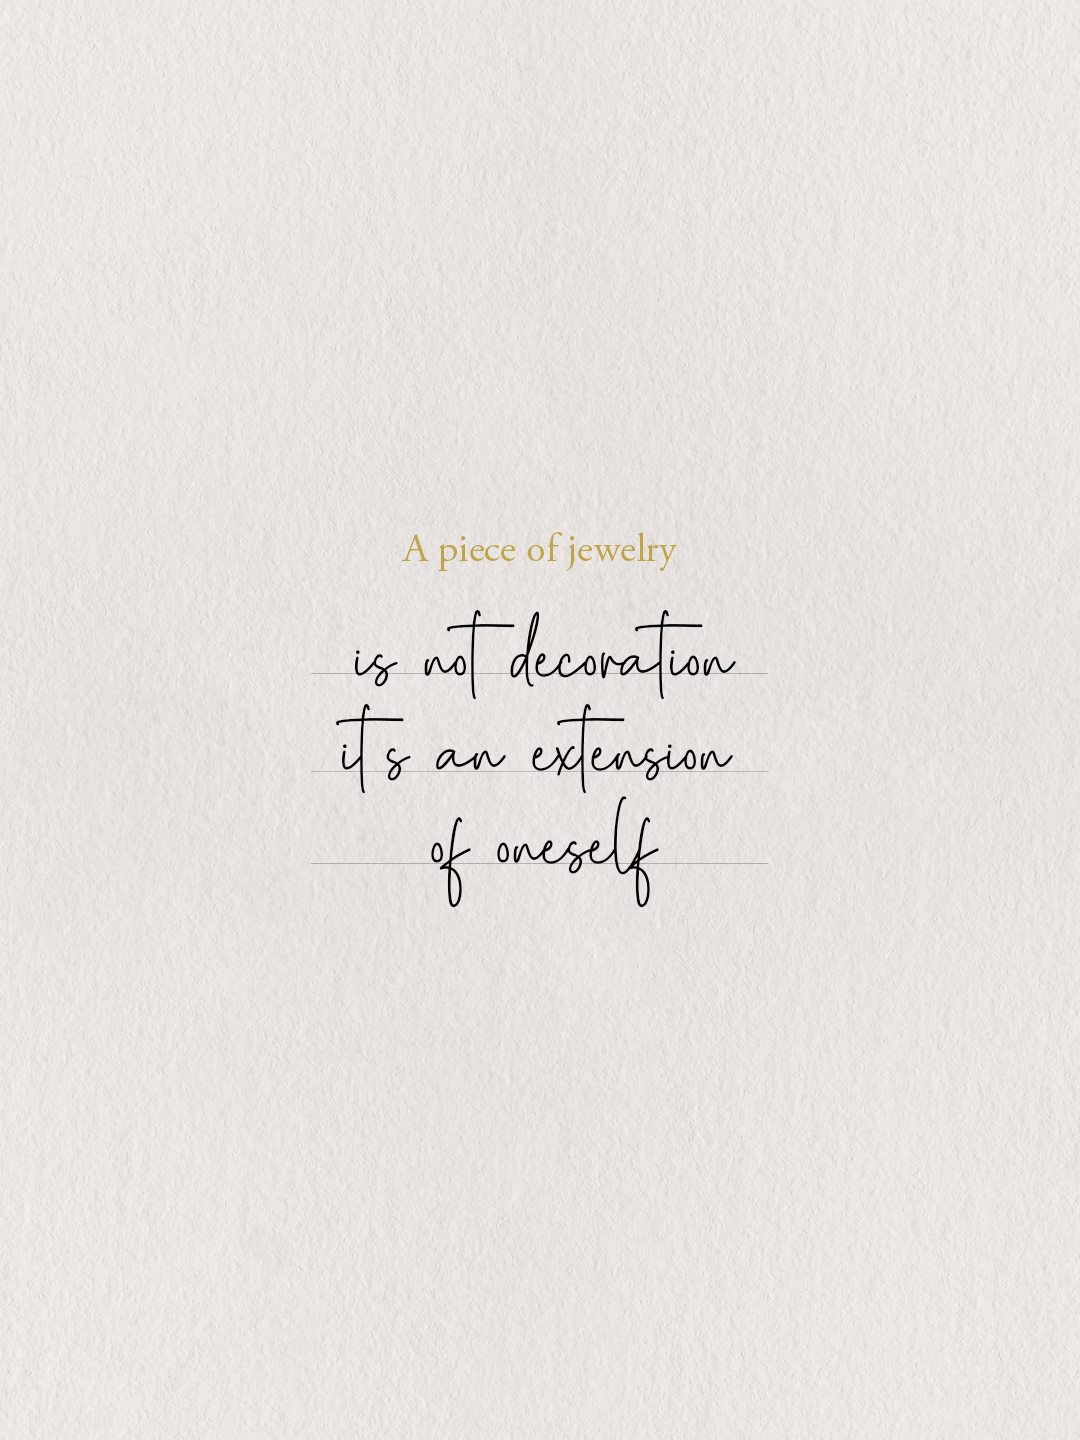 A piece of jewelry
is not decoration
it s an extension
of oneself